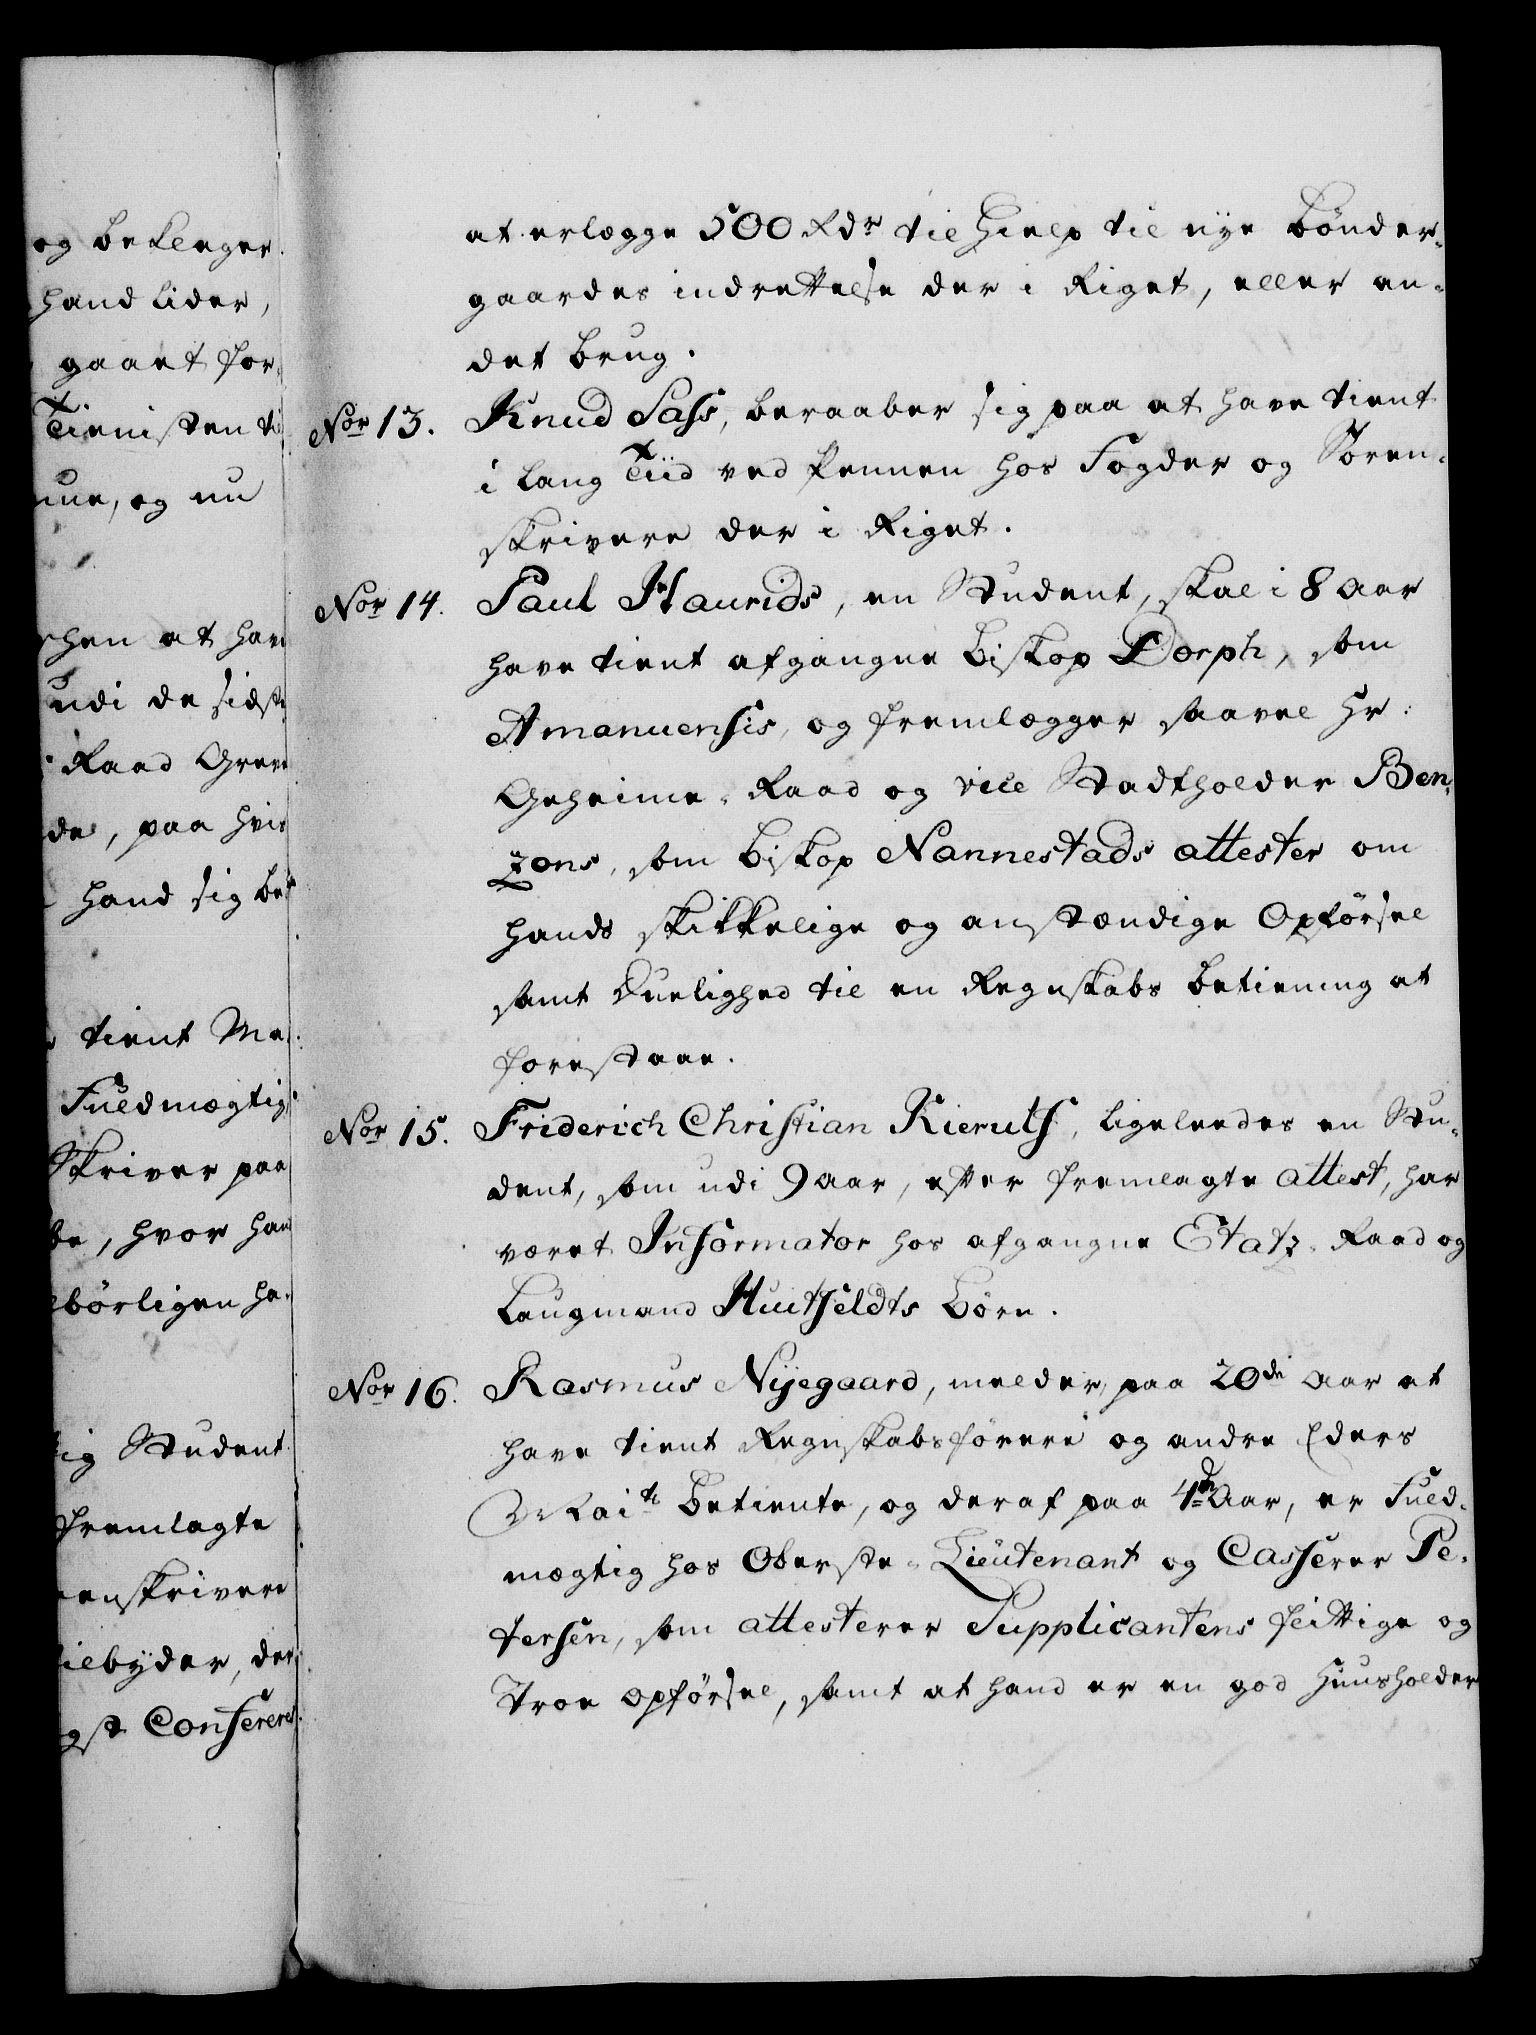 og beklager
hand lider,
gaaet for
Tienisten ti
nue, og nu
schen at hav
udi de sidste
Raad Greve
de, paa hvis
hand sig be
tient Ma
Fuldmægtig
Skriver paa
be, hvor han
børligen ha
ig Student
fremlagte
enskrivere
ilbyder, der
gst Conferere
at erlægge 500 Rdr til Hielp til nye Bønder-
gaardes indrettelse der i Riget, eller an-
det brug.
Nor 13. Knud Sass, beraaber sig paa at have tient
i lang Tiid ved Pennen hos Fogder og Soren-
skrivere der i Riget.
Nor 14. Paul Haurids, en Student, skal i 8 Aar
have tient afgangne Biskop Dorph, som
Amanuensis, og fremlægger saavel Hr:
Geheime-Raad og vice Stadtholder Ben-
zons, som Biskop Nannestads attester om
hands skikkelige og anstændige Opførsel
samt Duelighed til en Regnskabs betiening at
forestaae.
Nor 15. Friderich Christian Kierulf, ligeleedes en Stu-
dent, som udi 9 Aar, efter fremlagte attest, har
været Informator hos afgangne Etatz-Raad og
Laugmand Huitfeldts Børn.
Nor 16. Rasmus Nÿegaard, melder, paa 20de Aar at
have tient Regnskabsførere og andre Eders
Maits Betiente, og deraf paa 4de Aar, er Fuld-
mægtig hos Oberste-Lieutenant og Casserer Pe-
tersen, som attesterer Supplicantens flittige og
Troe opførsel, samt at hand er en god Huusholder